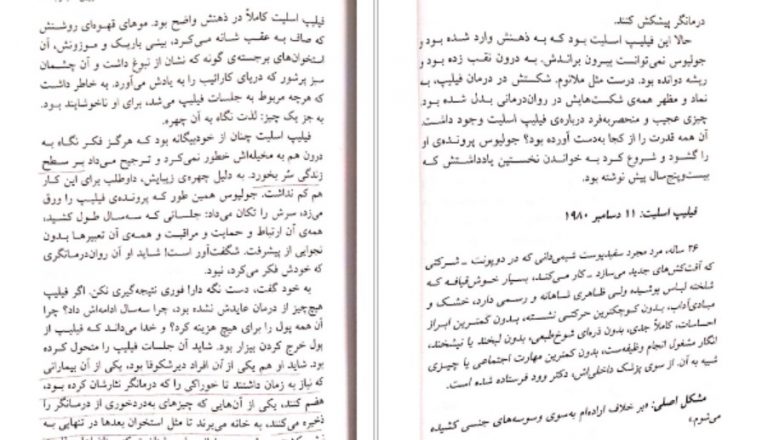 درمانگر پیشکش کنند.
حالا این فیلیپ اسلیت بود که به ذهنش وارد شده بود و
جولیوس نمی‌توانست بیرون براندش. به درون نقب زده بود و
ریشه دوانده بود. درست مثل ملانوم. شکستش در درمان فیلیپ، به
نماد و مظهر همه‌ی شکست‌هایش در روان‌درمانی بدل شده بود.
چیزی عجیب و منحصربه‌فرد درباره‌ی فیلیپ اسلیت وجود داشت.
آن همه قدرت را از کجا به‌دست آورده بود؟ جولیوس پرونده‌ی او
را گشود و شروع کرد به خواندن نخستین یادداشتش که
بیست‌وپنج‌سال پیش نوشته بود.
فیلیپ اسلیت: ۱۱ دسامبر ۱۹۸۰
۲۶ ساله، مرد مجرد سفیدپوست شیمی‌دانی که در دوپونت - شرکتی
که آفت‌کش‌های جدید می‌سازد - کار می‌کند، بسیار خوش‌قیافه که
شلخته لباس پوشیده ولی ظاهری شاهانه و رسمی دارد، خشک و
مبادی‌آداب، بدون کوچکترین حرکتی نشسته، بدون کمترین ابراز
احساسات، کاملاً جدی، بدون ذره‌ای شوخ‌طبعی، بدون لبخند یا نیشخند،
انگار مشغول انجام وظیفه‌ست، بدون کمترین مهارت اجتماعی یا چیزی
شبیه به آن. از سوی پزشک داخلی‌اش، دکتر وود فرستاده شده است.
مشکل اصلی: «بر خلاف اراده‌ام به‌سوی و وسوسه‌های جنسی کشیده
می‌شوم.»
فیلیپ اسلیت کاملاً در ذهنش واضح بود. موهای قهوه‌ای روشنش
که صاف به عقب شانه می‌کرد، بینی باریک و موزونش، آن
استخوان‌های برجسته‌ی گونه که نشان از نبوغ داشت و آن چشمان
سبز پرشور که دریای کارائیب را به یادش می‌آورد. به خاطر داشت
که هرچه مربوط به جلسات فیلیپ می‌شد، برای او ناخوشایند بود.
به جز یک چیز: لذت نگاه به آن چهره.
فیلیپ اسلیت چنان از خودبیگانه بود که هرگز فکر نگاه به
درون هم به مخیله‌اش خطور نمی‌کرد و ترجیح می‌داد بر سطح
زندگی سُر بخورد. به دلیل چهره‌ی زیبایش، داوطلب برای این کار
هم کم نداشت. جولیوس همین طور که پرونده‌ی فیلیپ را ورق
می‌زد، سرش را تکان می‌داد: جلساتی که سه‌سال طول کشید،
همه‌ی آن ارتباط و حمایت و مراقبت و همه‌ی آن تعبیرها بدون
نجوایی از پیشرفت. شگفت‌آور است! شاید او آن روان‌درمانگری
که خودش فکر می‌کرد، نبود.
به خود گفت، دست نگه دار! فوری نتیجه‌گیری نکن. اگر فیلیپ
هیچ‌چیز از درمان عایدش نشده بود، چرا سه‌سال ادامه‌اش داد؟ چرا
آن همه پول را برای هیچ هزینه کرد؟ و خدا می‌داند که فیلیپ از
پول خرج کردن بیزار بود. شاید آن جلسات فیلیپ را متحول کرده
بود. شاید او هم یکی از آن افراد دیرشکوفا بود، یکی از آن بیمارانی
که نیاز به زمان داشتند تا خوراکی را که درمانگر نثارشان کرده بود،
هضم کنند، یکی از آن‌هایی که چیزهای به‌دردخوری از درمانگر را
ذخیره می‌کنند، به خانه می‌برند تا مثل استخوان بعدها در تنهایی به